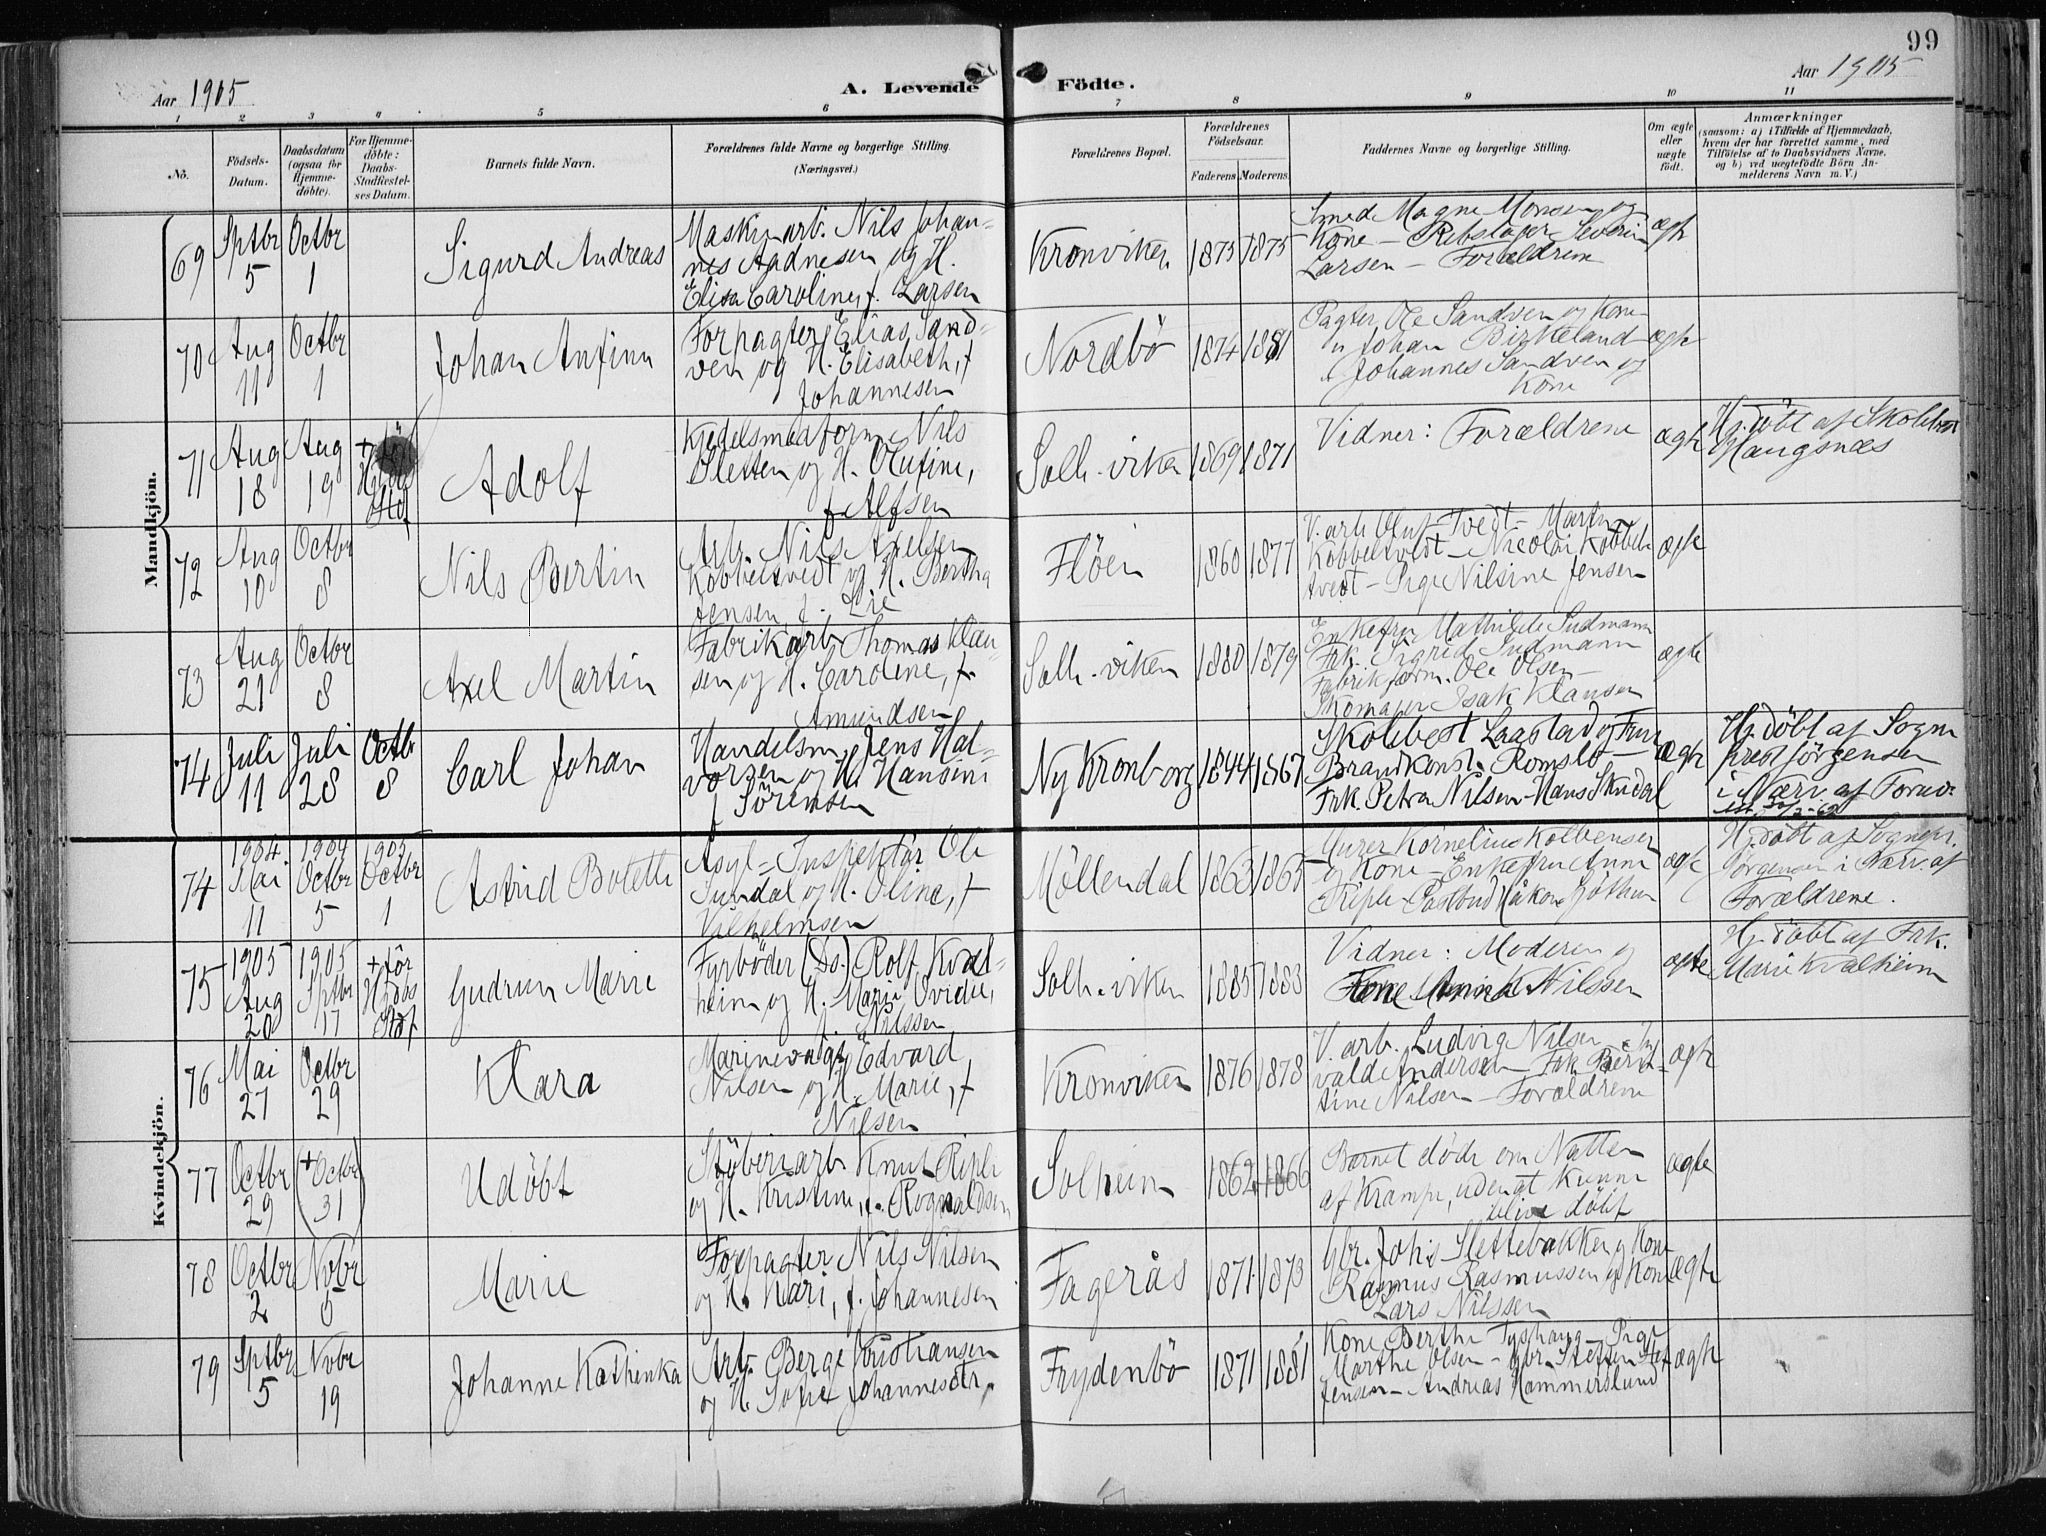 99
Aar 1905
A. Levende Födte.
Aar 1905
1 2 3 4 5 6 7 8 9 10 11
No.
Födsels-Datum.
Daabsdatum (ogsaa for Hjemme-döbte).
For Hjemme-döbte: Daabs-Stadfæstelses Datum.
Barnets fulde Navn.
Forældrenes fulde Navne og borgerlige Stilling.
(Næringsvei.)
Forældrenes Bopæl.
Forældrenes Födselsaar.
Faderens Moderens
Faddernes Navne og borgerlige Stilling.
Om ægte eller uægte födt.
Anmærkninger
(saasom: a) i Tilfælde af Hjemmedaab,
hvem der har forrettet samme, med
Tilföielse af to Daabsvidners Navne,
og b) ved uægtefödte Börn An-
melderens Navn m. V.)
Mandkjön.
69 Sptbr 5 Octbr 1
Sigurd Andreas
Maskinarb. Nils Johan-
nes Aadnesen og H.
Elisa Caroline, f. Larsen
Kronviken 1873 1875
Smed Magne Monsen og
Kone - Rebslager Severin
Larsen - Forældrene
ægte
70 Aug 11 Octbr 1
Johan Anfinn
Forpagter Elias Sand-
ven og H. Elisabeth, f
Johannesen
Nordbö 1874 1881
Pagter Ole Sandven og Kone
" Johan Birkeland
" Johannes Sandven og
Kone
ægte
71 Aug 18 Aug 19
Adolf
Kjedelsmedform. Nils
Sletten og H. Olufine,
f Alfsen
Solh.viken 1869 1871
Vidner: Forældrene
ægte
Hj.döbt af Skolebest
Haugsnæs
72 Aug 10 Octbr 8
Nils Bertin
Arb. Nils Axelsen
Kobbeltvedt og H. Bertha
Jensen, f. Lie
Flöen 1860 1877
V.arb Oluf Tvedt - Martin
Kobbeltvedt - Nicolai Kobbel-
tvedt - Pige Nilsine Jensen
ægte
73 Aug 21 Octbr 8
Axel Martin
Fabrikarb Thomas Klau-
sen og H. Caroline, f.
Amundsen
Solh.viken 1880 1879
Enkefru Mathilde Sudmann
Frk. Sigrid Sudmann
Fabrikform. Ole Olsen -
Skomager Isak Klausen
ægte
74 Juli 11 Juli 28 Octbr 8
Carl Johan
Handelsm. Jens Hal-
vorsen og H. Hansine
f Sörensen
Ny Kronborg 1844 1867
Skolebest Laastad og Frue
Brandkonst. Romslo -
Frk. Petra Nilsen - Hans Skudal
ægte
Hj.döbt af Sogne
prest Jörgensen
i Nærv. af Foræl.
Kvindekjön.
74 1904 Mai 11 1904 Octbr 5 1905 Octbr 1
Astrid Botette
Asyl-Inspektör Ole
Sundal og H. Oline, f
Vilhelmsen
Möllendal 1863 1865
Murer Kornelius Kolbensen
og Kone - Enkefru Anna
Riple - Postbud Håkon Gjöthun
ægte
Hj.döbt af Sognepr.
Jörgensen i Nærv. af
Forældrene.
75 1905 Aug 20 1905 Sptbr 17 + för Hjdbs Stdf
Gudrun Marie
Fyrböder (Ds.) Rolf Kval-
heim og H. Marie Ovidie,
f. Nilssen
Solh.viken 1885 1883
Vidner: Moderen og
Kone Anna Nilssen
ægte
Hj.döbt af Frk.
Marie Kvalheim
76 Mai 27 Octbr 29
Klara
Marinevagt Edvard
Nilsen og H. Marie, f
Nilsen
Kronviken 1876 1878
V.arb. Ludvig Nilsen - Thr-
vald Andersen - Frk. Bern-
tine Nilsen - Forældrene
ægte
77 Octbr 29 (+ Octbr 31)
Udöbt
Stöberiarb Knut Riple
og H. Kristine, f. Rognaldsen
Solheim 1862 1866
Barnet döde om Natten
af Krampe, uden at kunne
blive döbt
ægte
78 Octbr 2 Novbr 5
Marie
Forpagter Nils Nilsen
og H. Kari, f. Johannesen
Fagerås 1871 1873
Gbr. Johs Slettebakken og Kone
Rasmus Rasmussen og Kone
Lars Nilssen
ægte
79 Sptbr 5 Novbr 19
Johanne Kathinka
Arb. Berge Kristiansen
og H. Sofie Johannesdtr.
Frydenbö 1871 1881
Kone Berthe Tyshaug - Pige
Marthe Olsen - Gbr. Steffen
Jensen - Andreas Hammerslund
ægte